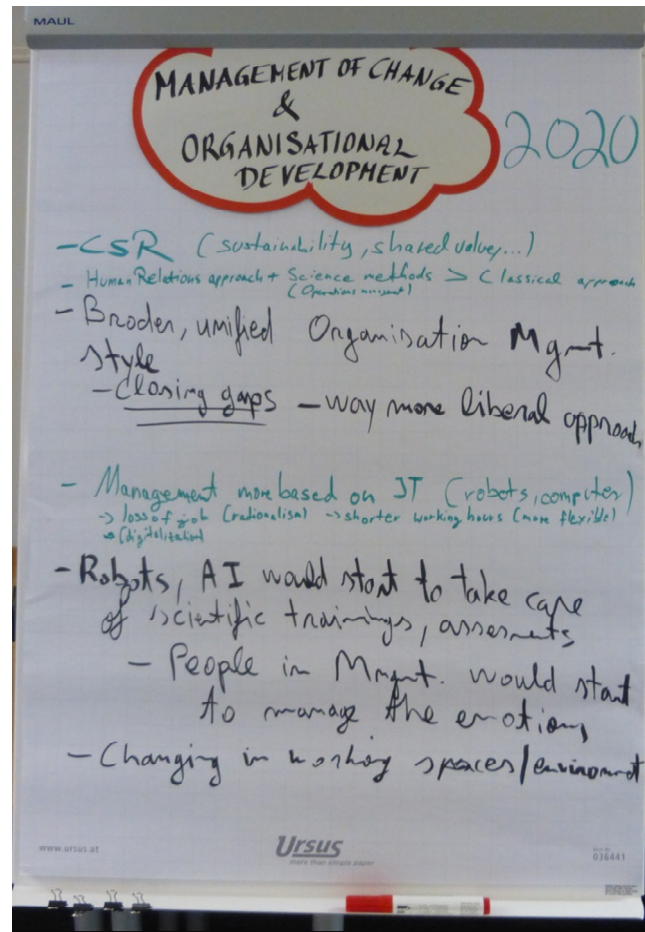 MAUL
MANAGEMENT OF CHANGE
&
ORGANISATIONAL
DEVELOPMENT
2020
- CSR (sustainability, shared value, ...)
- Human Relations approach + Science methods > Classical approach
(Operations
- Broder, unified Organisation Mgmt.
style
- Closing gaps - way more liberal approach
- Management more based on IT (robots, computer)
-> loss of job (rationalism) -> shorter working hours (more flexible)
(digitalization)
- Robots, AI would start to take care
of scientific trainings, assesments
- People in Mngmt. would start
to manage the emotions
- Changing in working spaces/enviroment
www.ursus.at
Ursus
more than simple paper
036441